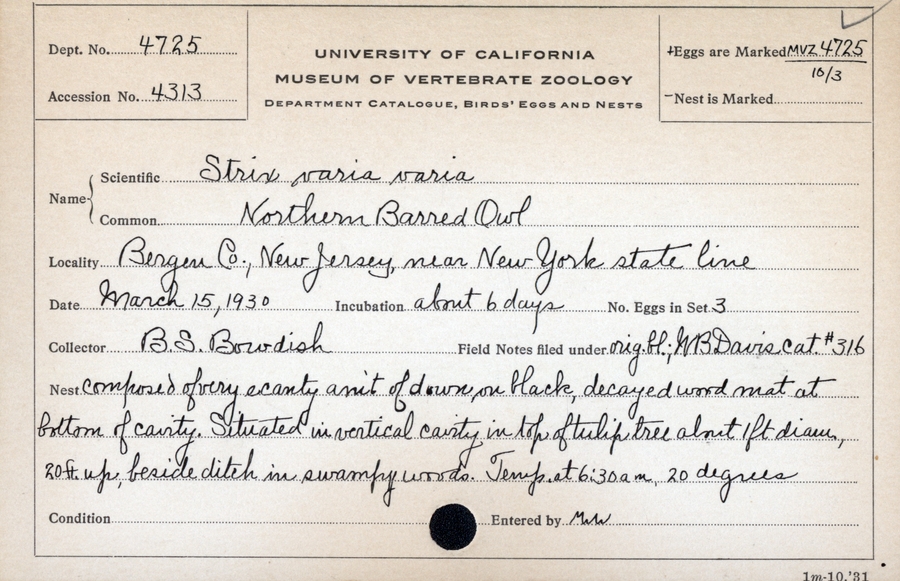 Dept. No. 4725
UNIVERSITY OF CALIFORNIA
MUSEUM OF VERTEBRATE ZOOLOGY
DEPARTMENT CATALOGUE, BIRDS' EGGS AND NESTS
+Eggs are Marked MVZ 4725
10/3
Accession No. 4313
-Nest is Marked
Name
Scientific Strix varia varia
Common Northern Barred Owl
Locality Bergen Co., New Jersey, near New York state line
Date March 15, 1930 Incubation about 6 days No. Eggs in Set 3
Collector B.S. Bowdish Field Notes filed under orig. bl.; WB Davis cat. #316
Nest composed of very scanty amt of down, on black, decayed wood mat at
bottom of cavity. Situated in vertical cavity in top of tulip tree about 1 ft diam.,
20 ft. up, beside ditch in swampy woods. Temp. at 6:30 am, 20 degrees
Condition Entered by
1m-10,'31